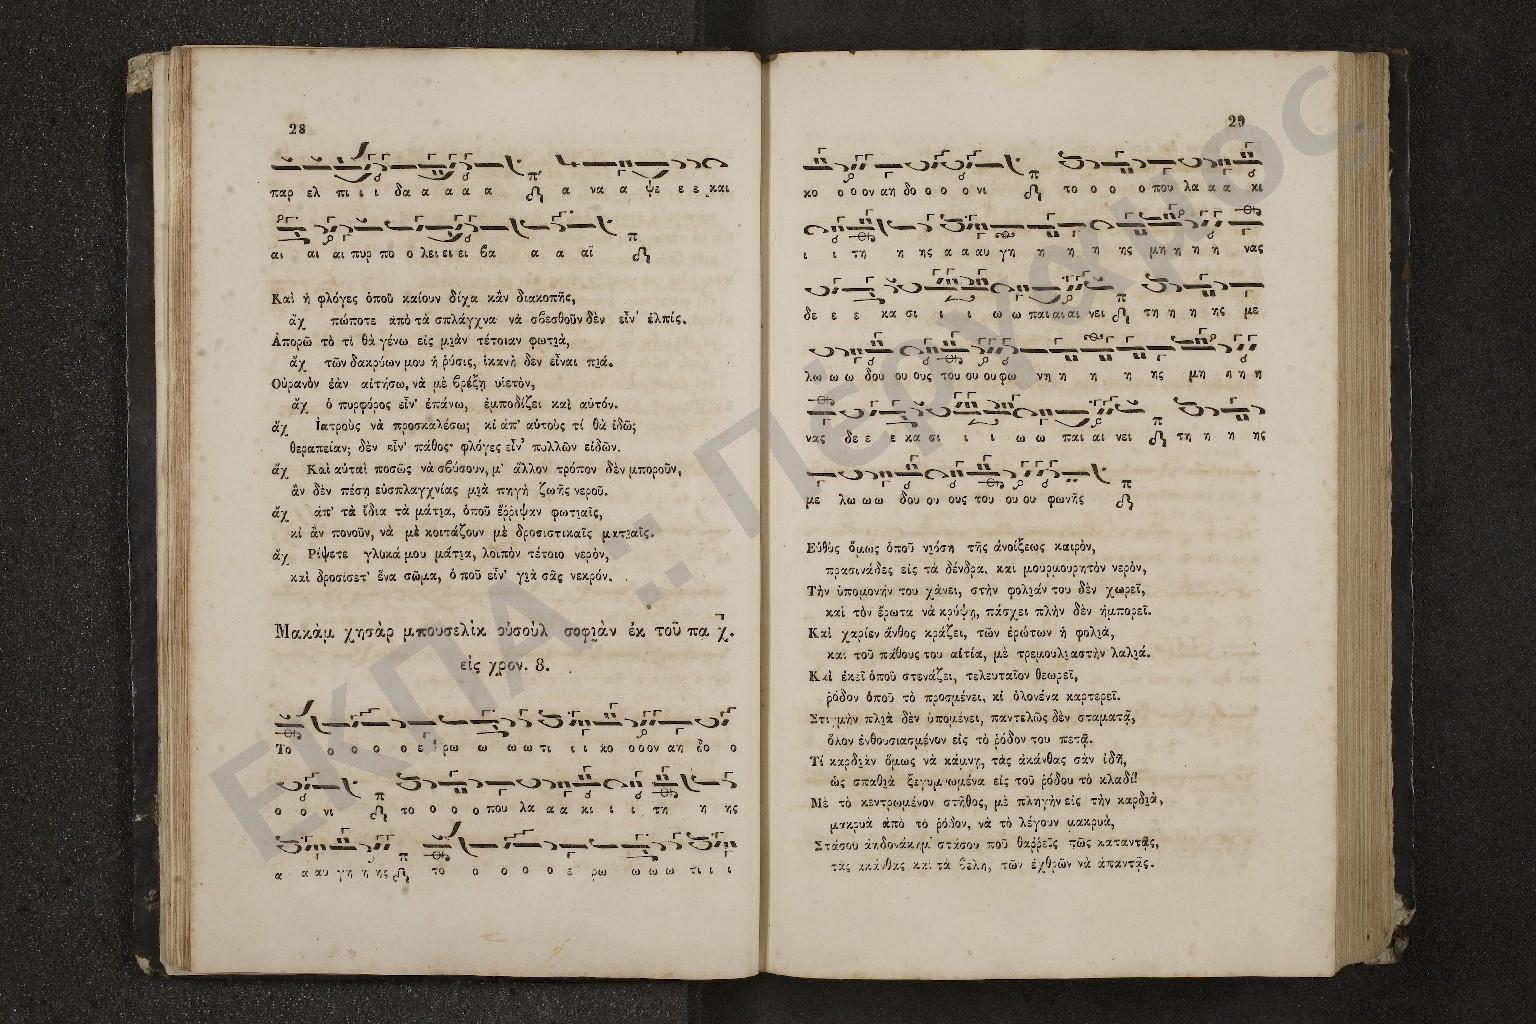 28
παρ ελ πι ι ι δα α α α α α να α ψε ε ε και
αι αι αι πυρ πο ο λει ει ει βα α α αϊ
Καὶ ἡ φλόγες ὁποῦ καίουν δίχα κἂν διακοπῆς,
ἄχ πώποτε ἀπὸ τὰ σπλάγχνα νὰ σβεσθοῦν δὲν εἶν' ἐλπίς.
Ἀπορῶ τὸ τί θὰ γένω εἰς μιὰν τέτοιαν φωτιὰ,
ἄχ τῶν δακρύων μου ἡ ῥύσις, ἱκανὴ δεν εἶναι πιά.
Οὐρανὸν ἐὰν αἰτήσω, νὰ μὲ βρέξῃ υἱετὸν,
ἄχ ὁ πυρφόρος εἶν' ἐπάνω, ἐμποδίζει καὶ αὐτόν.
ἄχ Ἰατροὺς νὰ προσκαλέσω; κι ἀπ' αὐτοὺς τί θὰ ἰδῶ;
θεραπείαν; δὲν εἶν' πάθος· φλόγες εἶν' πολλῶν εἰδῶν.
ἄχ Καὶ αὐταὶ ποσῶς νὰ σβύσουν, μ' ἄλλον τρόπον δὲν μποροῦν,
ἂν δὲν πέσῃ εὐσπλαγχνίας μιὰ πηγὴ ζωῆς νεροῦ.
ἄχ ἀπ' τὰ ἴδια τὰ μάτια, ὁποῦ ἔῤῥιψαν φωτιαῖς,
κὶ ἂν πονοῦν, νὰ μὲ κοιτάζουν μὲ δροσιστικαῖς ματιαῖς.
ἄχ Ρίψετε γλυκά μου μάτια, λοιπὸν τέτοιο νερὸν,
καὶ δροσίσετ' ἕνα σῶμα, ὁποῦ εἶν' γιὰ σᾶς νεκρόν.
Μακὰμ χησὰρ μπουσελὶκ οὐσοὺλ σοφιὰν ἐκ τοῦ πα χ.
εἰς χρον. 8.
Το ο ο ο ο ε ρω ω ω ω τι ι ι κο ο ο ον αη δο ο
ο ο νι το ο ο ο που λα α α κι ι ι τη η ης
α α αυ γη η ης το ο ο ο ο ε ρω ω ω ω τι ι ι
29
κο ο ο ον αη δο ο ο ο νι το ο ο ο που λα α α κι
ι ι τη η ης α α αυ γη η η η ης μη η η η νας
δε ε ε ε κα σι ι ι ω ω παι αι αι νει τη η η ης με
λω ω ω δου ου ους του ου ου φω νη η η η ης μη η η η
νας δε ε ε κα σι ι ι ω ω παι αι νει τη η η ης
με λω ω ω δου ου ους του ου ου φωνῆς
Εὐθὺς ὅμως ὁποῦ νιόσῃ τῆς ἀνοίξεως καιρὸν,
πρασινάδες εἰς τὰ δένδρα. καὶ μουρμουρητὸν νερὸν,
Τὴν ὑπομονήν του χάνει, στὴν φολιάν του δὲν χωρεῖ,
καὶ τὸν ἔρωτα νὰ κρύψῃ, πάσχει πλὴν δὲν ἠμπορεῖ.
Καὶ χαρίεν ἄνθος κράζει, τῶν ἐρώτων ἡ φολιὰ,
καὶ τοῦ πάθους του αἰτία, μὲ τρεμουλιαστὴν λαλιά.
Καὶ ἐκεῖ ὁποῦ στενάζει, τελευταῖον θεωρεῖ,
ῥόδον ὁποῦ τὸ προσμένει. κὶ ὁλονένα καρτερεῖ.
Στιγμὴν πλιὰ δὲν ὑπομένει, παντελῶς δὲν σταματᾷ,
ὅλον ἐνθουσιασμένον εἰς τὸ ῥόδον του πετᾷ.
Τί καρδιὰν ὅμως νὰ κάμνῃ, τὰς ἀκάνθας σὰν ἰδῇ,
ὡς σπαθιὰ ξεγυμνωμένα εἰς τοῦ ῥόδου τὸ κλαδί!
Μὲ τὸ κεντρωμένον στῆθος, μὲ πληγὴν εἰς τὴν καρδιὰ,
μακρυὰ ἀπὸ τὸ ῥόδον, νὰ τὸ λέγουν μακρυὰ,
Στάσου ἀηδονάκημ' στάσου ποῦ θαῤῥεῖς πῶς καταντᾷς,
τὰς ἀκάνθας καὶ τὰ βέλη, τῶν ἐχθρῶν νὰ ἀπαντᾷς.
ΕΚΠΑ :: Πέργαμος